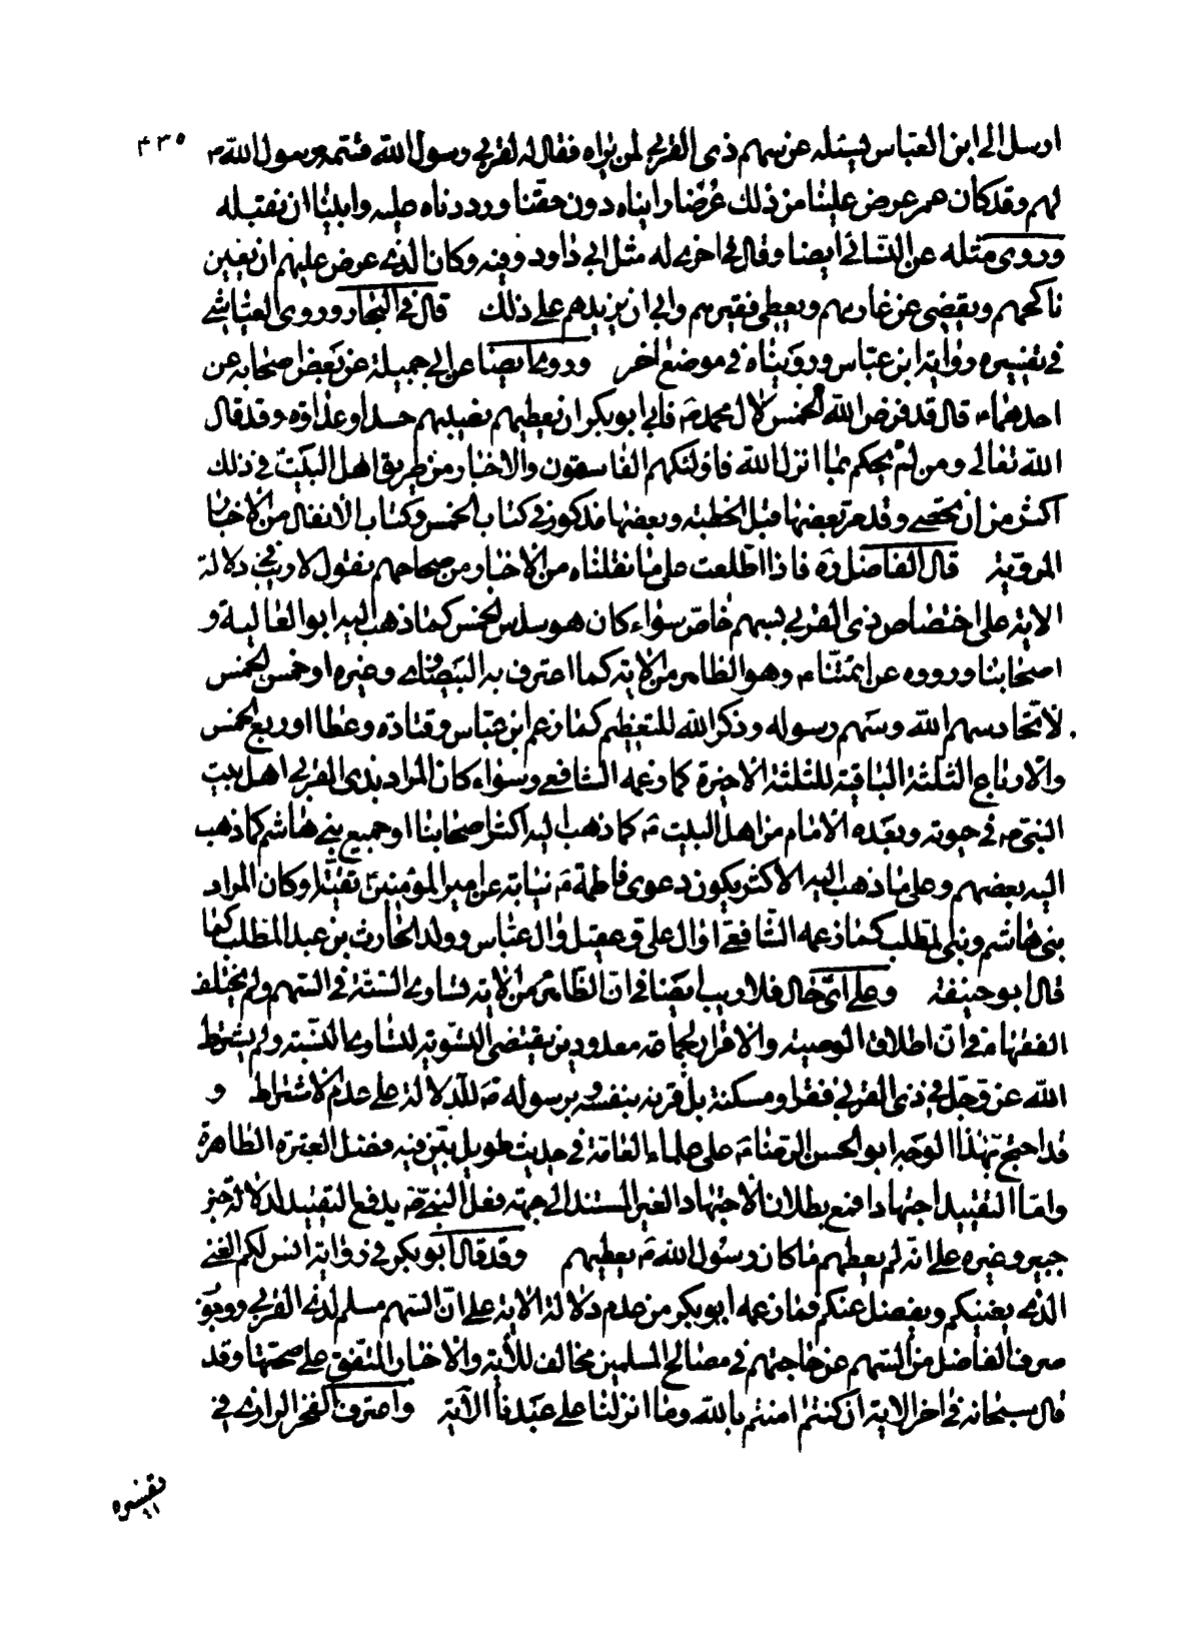 ٤٣٥
ارسل الى ابن العباس يسئله عن سهم ذى القربى لمن يراه فقال له لقربى رسول الله قسمه رسول الله ص
لهم وقد كان عمر عرض علينا من ذلك عرضا رايناه دون حقنا ورددناه عليه وابينا ان نقبله
وروى مثله عن النسائى ايضا وقال فى اخرى له مثل ابى داود وفيه وكان الذى عرض عليهم ان يعين
ناكحهم ويقضى عن غارمهم ويعطى فقيرهم وابى ان يزيدهم على ذلك قال فى البحار وروى العياشى
فى تفسيره رواية ابن عباس ورويناه فى موضع اخر وروى ايضا عن ابى جميلة عن بعض اصحابه عن
احدهما ع قال قد فرض الله الخمس لال محمد ص فابى ابو بكر ان يعطيهم نصيبهم حسدا وعداوة وقد قال
الله تعالى ومن لم يحكم بما انزل الله فاولئك هم الفاسقون والاخبار من طريق اهل البيت فى ذلك
اكثر من ان يحصى وقد مر بعضها قبل الخطبة وبعضها مذكور فى كتاب الخمس وكتاب الأنفال من الاخبار
المروية قال الفاضل ره فاذا اطلعت على ما نقلناه من الاخبار من صحاحهم نقول لا ريب فى دلالة
الاية على اختصاص ذى القربى بسهم خاص سواء كان هو سدس الخمس كما ذهب اليه ابو العالية و
اصحابنا ورووه عن ائمتنا ع وهو الظاهر من الاية كما اعترف به البيضاوى وغيره او خمس الخمس
لاتحاد سهم الله وسهم رسوله وذكر الله للتعظيم كما زعم ابن عباس وقتادة وعطا او ربع الخمس
والارباع الثلثة الباقية للثلثة الاخيرة كما زعمه الشافعى وسواء كان المراد بذى القربى اهل بيت
النبى ص فى حيوته وبعده الامام من اهل البيت ع كما ذهب اليه اكثر اصحابنا او جميع بنى هاشم كما ذهب
اليه بعضهم وعلى ما ذهب اليه الاكثر يكون دعوى فاطمة ع نيابة عن امير المؤمنين ع تقية او كان المراد
بنى هاشم وبنى المطلب كما زعمه الشافعى او ال على وعقيل وال عباس وولد الحارث بن عبد المطلب كما
قال ابو حنيفة وعلى اى حال فلا ريب ايضا فى ان الظاهر من الاية تساوى الستة فى السهم ولم يختلف
الفقهاء فى ان اطلاق الوصية والاقرار لجماعة معدودين يقتضى التسوية لتساوى النسبة ولم يشترط
الله عز وجل فى ذى القربى فقرا ومسكنة بل قرنه بنفسه وبرسوله ص للدلالة على عدم الاشتراط و
قد احتج بهذا الوجه ابو الحسن الرضا ع على علماء العامة فى حديث طويل بين فيه فضل العترة الطاهرة
واما التقييد اجتهادا فمع بطلان الاجتهاد الغير المستند الى جهة فعل النبى ص يدفع التقييد لدلالة خبر
جبير وغيره على انه لم يعطهم ما كان رسول الله ص يعطيهم وقد قال ابو بكر فى رواية انس لكم الغنى
الذى يغنيكم ويفضل عنكم فما زعمه ابو بكر من عدم دلالة الاية على ان السهم مسلم لذى القربى ووجوب
صرف الفاضل من السهم عن حاجتهم فى مصالح المسلمين مخالف للاية والاخبار المتفق على صحتها وقد
قال سبحانه فى اخر الاية ان كنتم امنتم بالله وما انزلنا على عبدنا الآية واعترف الفخر الرازى فى
تفسيره